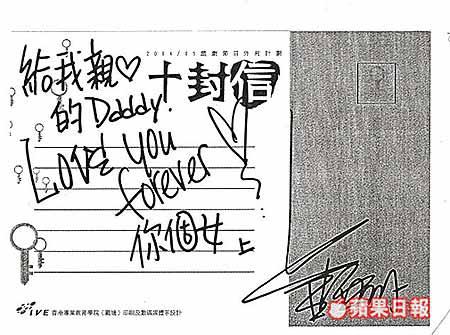 2004/05戲劇節目外展計劃
十封信
給我親♡
的Daddy!
Love you
forever
你個女上
IVE 香港專業教育學院(觀塘)印刷及數碼媒體系設計
蘋果日報